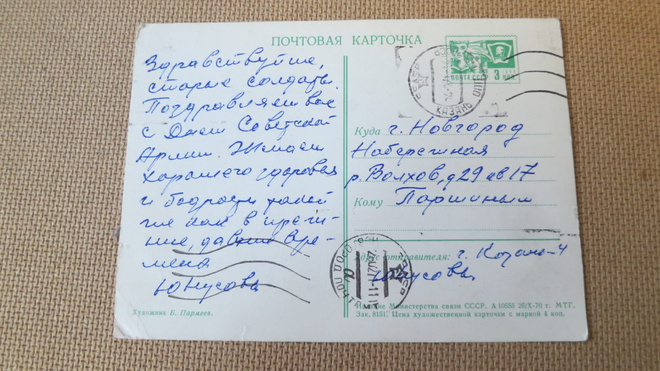 ПОЧТОВАЯ КАРТОЧКА
Здравствуйте,
старые солдаты.
Поздравляем вас
с Днем Советской
Армии. Желаем
хорошего здоровья
и бодрости
как в
давние вре-
мена
Юнусова
ПОЧТА СССР
3 коп
КАЗАНЬ
Куда г. Новгород
Набережная
р. Волхов, д 29 кв 17
Кому Паршиным
Адрес отправителя: г. Казань-4
Юнусова
Издание Министерства связи СССР. А 10555 26/X-70 г. МТГ.
Зак. 8151. Цена художественной карточки с маркой 4 коп.
Художник Б. Пармеев.